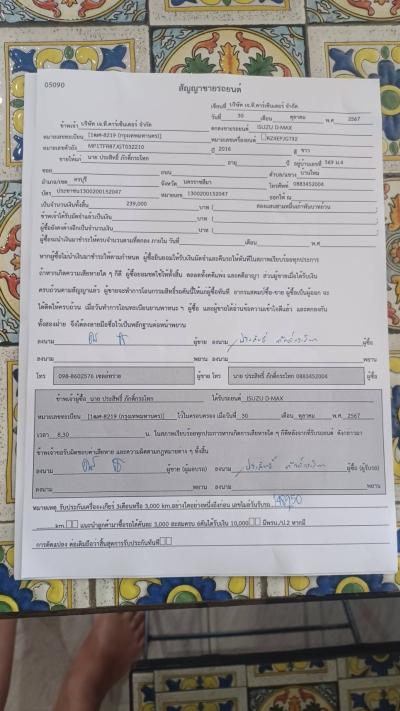 05090
สัญญาขายรถยนต์
เขียนที่ บริษัท เจ.ที.คาร์เซ็นเตอร์ จำกัด
วันที่ 30 เดือน ตุลาคม พ.ศ. 2567
ข้าพเจ้า บริษัท เจ.ที.คาร์เซ็นเตอร์ จำกัด ตกลงขายรถยนต์ ISUZU D-MAX
หมายเลขทะเบียน [1ฒศ-8219 (กรุงเทพมหานคร)] หมายเลขเครื่องยนต์
หมายเลขตัวถัง MP1TFR87JGT032210 ปี 2016 สี ขาว
ขายให้แก่ นาย ประสิทธิ์ ภักดิ์กระโทก อายุ ปี อยู่บ้านเลขที่ 569 ม.4
ซอย ถนน ตำบล/แขวง บ้านใหม่
อำเภอ/เขต ครบุรี จังหวัด นครราชสีมา โทรศัพท์ 0883452004
บัตร ประชาชน1300200152047 หมายเลข 1300200152047 ออกให้ ณ
เป็นจำนวนเงินทั้งสิ้น 239,000 บาท ( สองแสนสามหมื่นเก้าพันบาทถ้วน )
ข้าพเจ้าได้รับมัดจำแล้วเป็นเงิน บาท ( )
ผู้ซื้อยังคงค้างอีกเป็นจำนวนเงิน บาท ( )
ผู้ซื้อจะนำเงินมาชำระให้ครบจำนวนตามที่ตกลง ภายใน วันที่ เดือน พ.ศ.
หากผู้ซื้อไม่นำเงินมาชำระให้ตามกำหนด ผู้ซื้อยินยอมให้ริบเงินมัดจำและคืนรถให้ทันทีในสภาพเรียบร้อยทุกประการ
ถ้าหากเกิดความเสียหายใด ๆ ก็ดี ผู้ซื้อยอมชดใช้ให้ทั้งสิ้น ตลอดทั้งคดีแพ่ง และคดีอาญา ส่วนผู้ขายเมื่อได้รับเงิน
ครบถ้วนตามสัญญาแล้ว ผู้ขายจะทำการโอนกรรมสิทธิ์รถคันนี้ให้แก่ผู้ซื้อทันที
ได้คิดให้ครบถ้วน เมื่อวันทำการโอนทะเบียนยานพาหนะ ๆ ผู้ซื้อ และผู้ขายได้อ่านข้อความเข้าใจดีแล้ว และตกลงกัน
ทั้งสองฝ่าย จึงได้ลงลายมือชื่อไว้เป็นหลักฐานต่อหน้าพยาน
ลงนาม ผู้ขาย ลงนาม ประสิทธิ์ ภักดิ์กระโทก ผู้ซื้อ
ลงนาม พยาน ลงนาม พยาน
โทร 098-8602576 เซลล์ทราย ผู้ขาย โทร นาย ประสิทธิ์ ภักดิ์กระโทก 0883452004 ผู้ซื้อ
ข้าพเจ้าผู้ซื้อ นาย ประสิทธิ์ ภักดิ์กระโทก ได้รับรถยนต์ ISUZU D-MAX
หมายเลขทะเบียน [1ฒศ-8219 (กรุงเทพมหานคร)] ไว้ในครอบครอง เมื่อวันที่ 30 เดือน ตุลาคม พ.ศ. 2567
เวลา 8.30 น. ในสภาพเรียบร้อยทุกประการหากเกิดการเสียหายใด ๆ ก็ดีหลังจากที่รับรถยนต์ ดังกล่าวมา
ข้าพเจ้าขอรับผิดชอบค่าเสียหาย และความผิดตามกฎหมายต่าง ๆ ทั้งสิ้น
ลงนาม ผู้ขาย (ผู้มอบรถ) ลงนาม ประสิทธิ์ ภักดิ์กระโทก ผู้ซื้อ (ผู้รับรถ)
ลงนาม พยาน ลงนาม พยาน
หมายเหตุ รับประกันเครื่อง+เกียร์ 3เดือนหรือ 3,000 km.อย่างใดอย่างหนึ่งถึงก่อน เลขไมล์วันรับรถ
km. แนะนำลูกค้ามาซื้อรถได้คันละ 3,000 สะสมครบ 6คันได้รับเงิน 10,000 มีพรบ./ป.2 หากมี
การดัดแปลง ต่อเติมถือว่าสิ้นสุดการรับประกันทันที